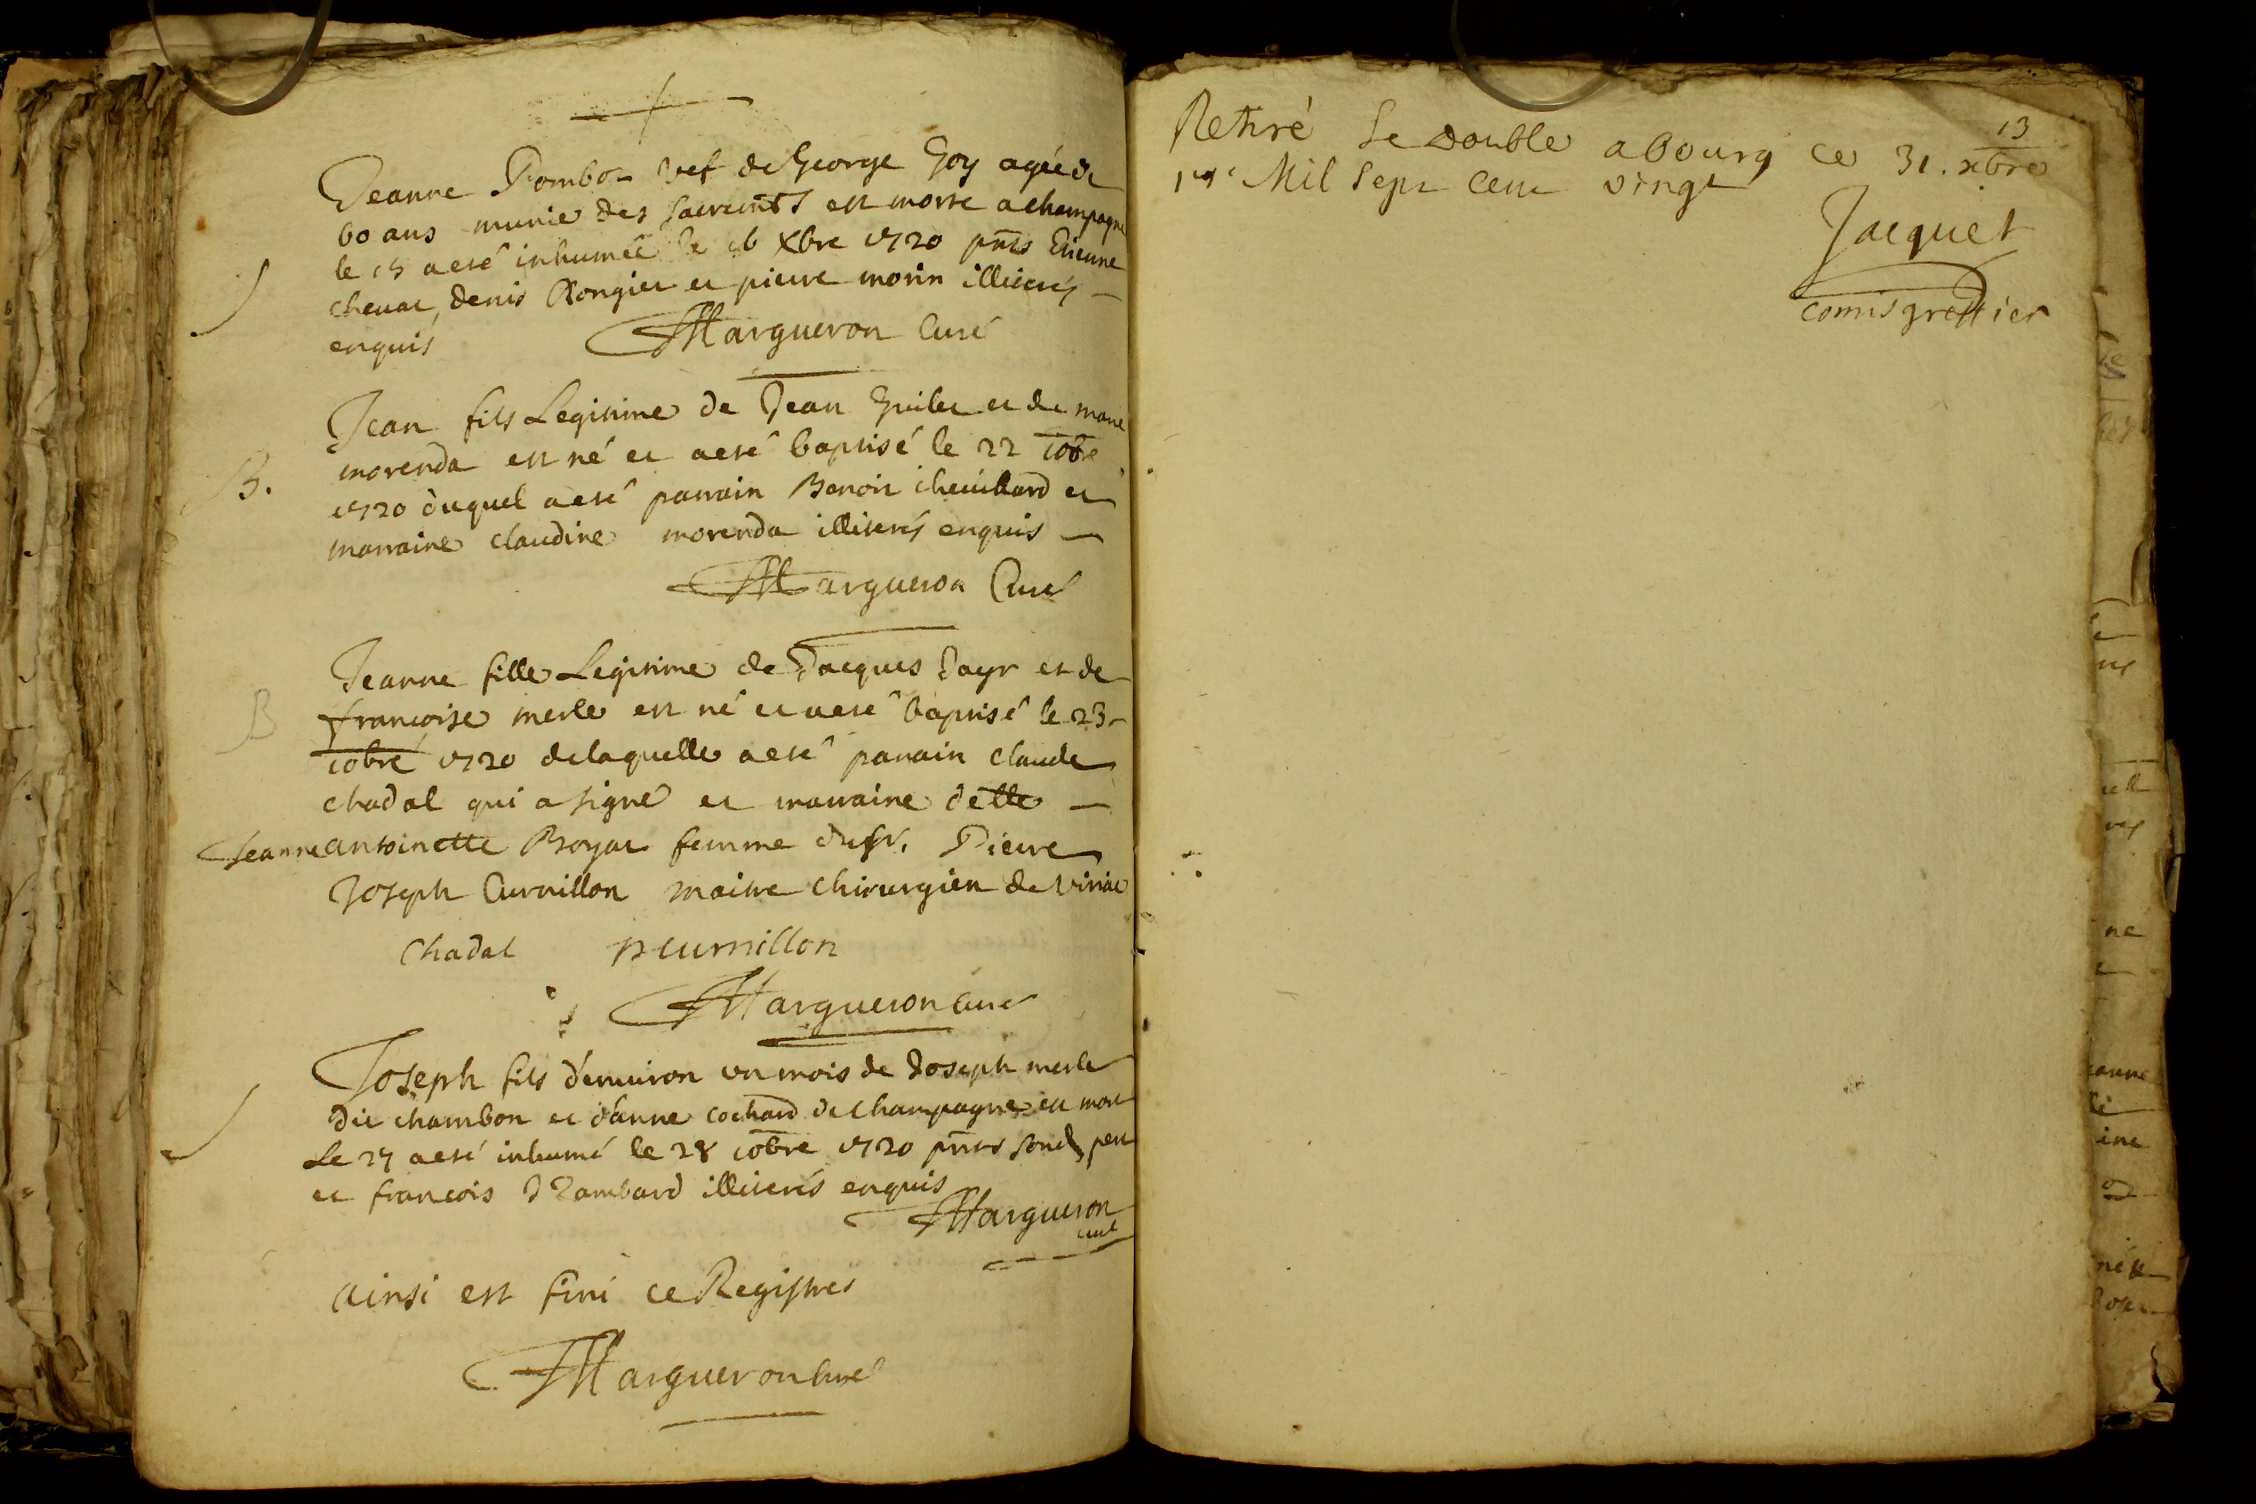 Jeanne Pombo vef de George Goy agée de
60 ans munie des sacremts est morte a champagne
le 15 a eté inhumée le 16 Xbre 1720 pnts Etienne
chevat, denis Rongier et pierre morin illiterés
enquis Margueron Curé
Jean fils Legitime de Jean Guilet et de marie
B. morenda est né et a eté baptisé le 22 10bre
1720 duquel a eté parrain Benoit chevillard et
marraine claudine morenda illiterés enquis
Margueron Curé
Jeanne fille Legitime de Jacques Payr et de
B françoise merle est né et a eté baptisé le 23
10bre 1720 de laquelle a eté parrain claude
chadal qui a signé et marraine delle
Jeanne antoinette Boyat femme du sr. Pierre
Joseph Curnillon maitre chirurgien de viriat
Chadal Curnillon
Margueron Curé
Joseph fils d'environ un mois de Joseph merle
dit chambon et d'anne cochard de champagne est mort
Le 27 a eté inhumé le 28 10bre 1720 pnts
et françois illiterés enquis
Margueron
curé
ainsi est fini ce Registres
Margueron Curé
13
Retiré Le double a bourg ce 31. xbre
Mil Sept Cent vingt
Jacquet
comis greffier